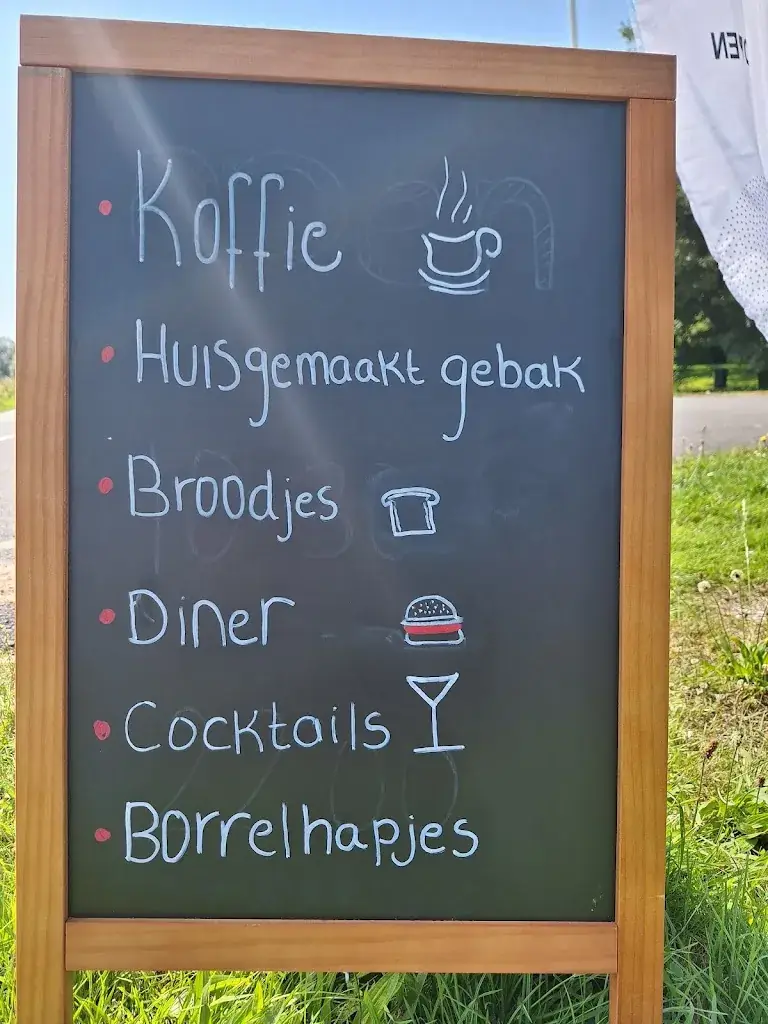 Koffie
Huisgemaakt gebak
Broodjes
Diner
Cocktails
Borrelhapjes